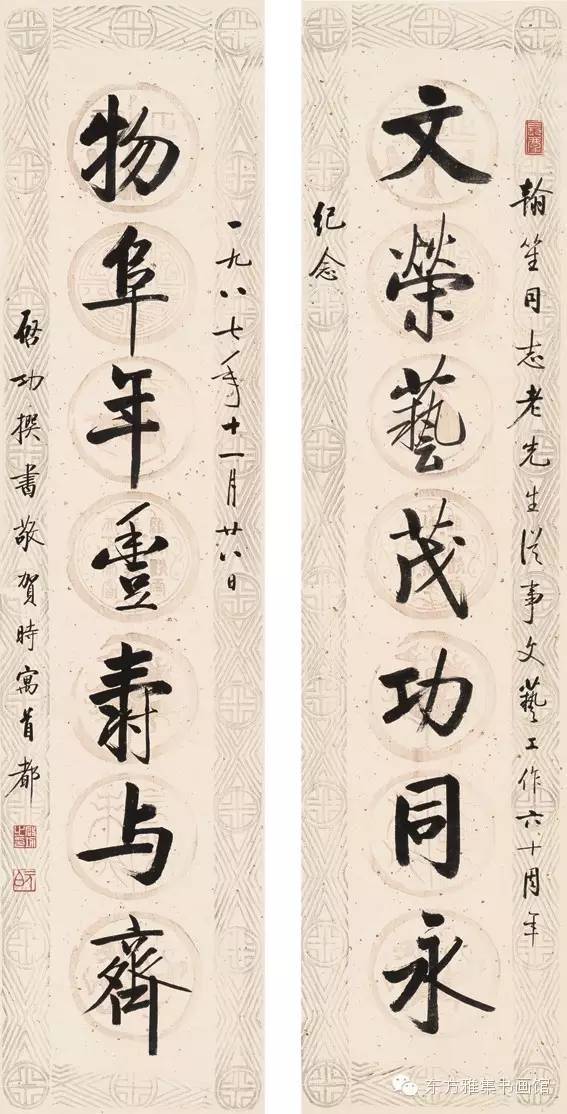 文榮藝茂功同永
翰笙同志老先生從事文藝工作六十周年
紀念
物阜年豐壽与齊
一九八七年十一月廿八日
啓功撰書敬賀時寓首都
东方雅集书画馆